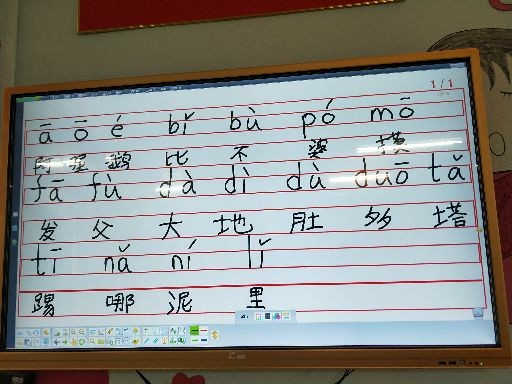 1/1
ā ō é bǐ bù pó mō
阿 喔 鹅 比 不 婆 摸
fā fù dà dì dù duō tǎ
发 父 大 地 肚 多 塔
tī nǎ ní lǐ
踢 哪 泥 里